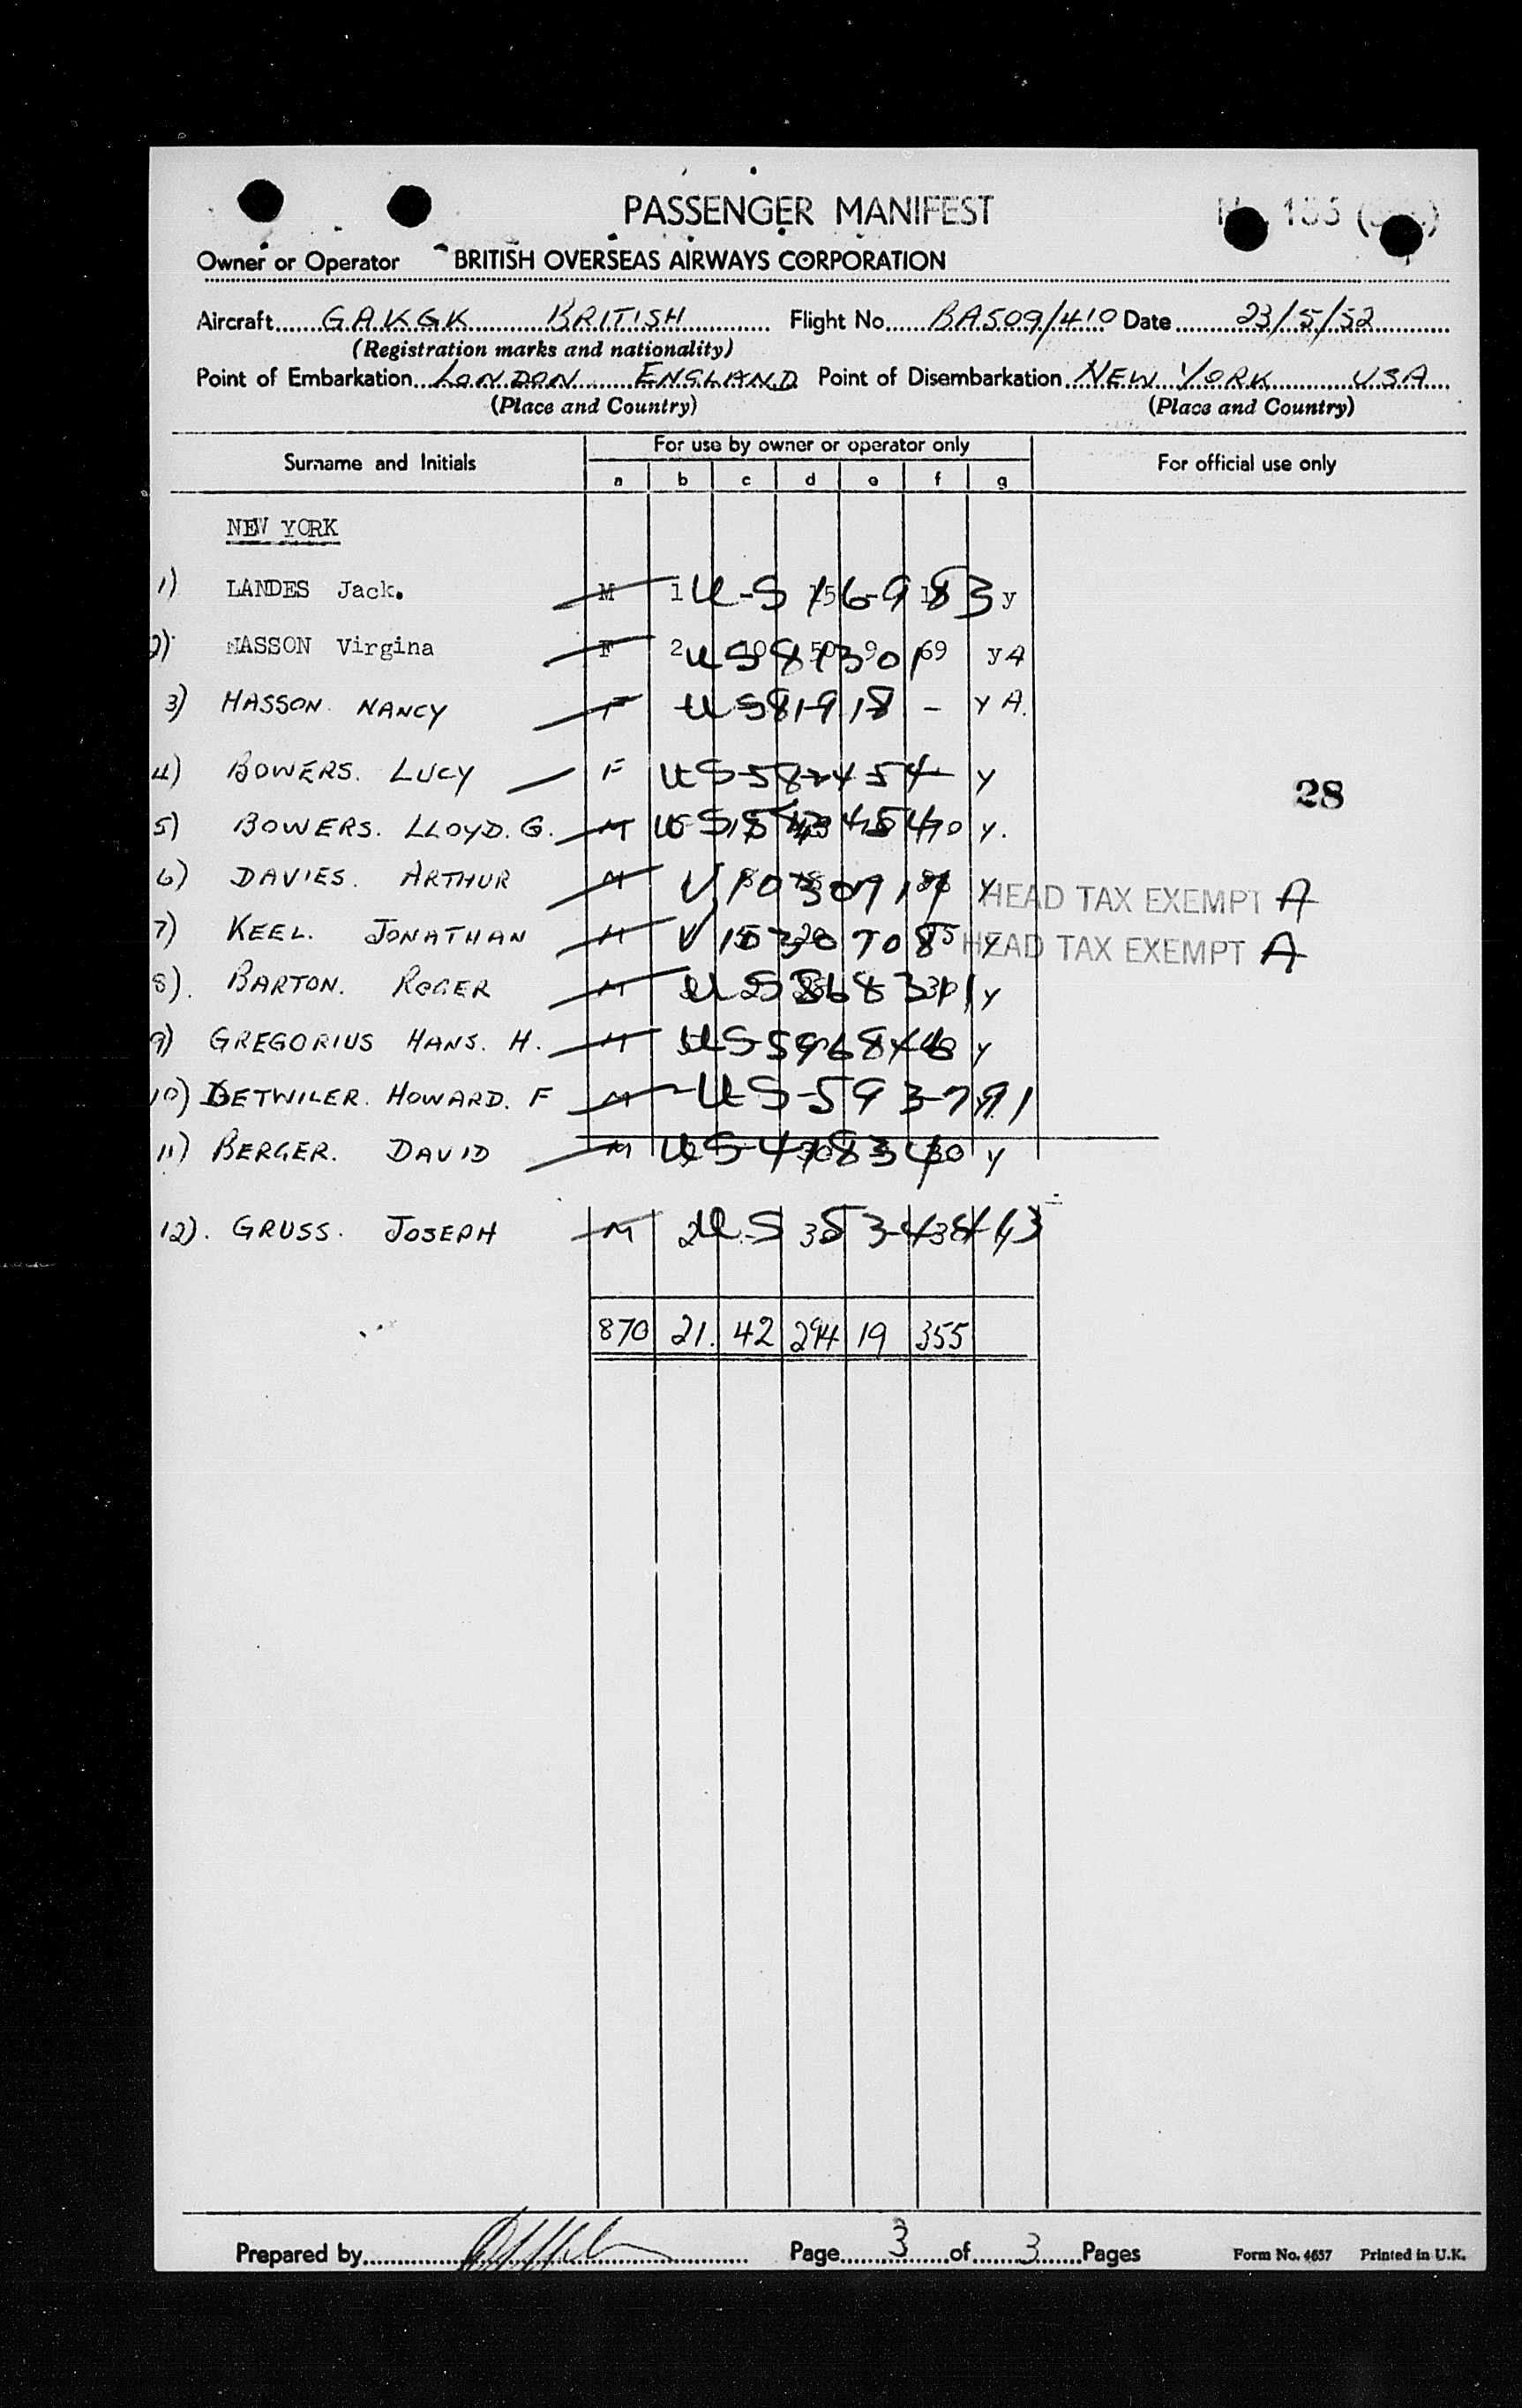 PASSENGER MANIFEST
Owner or Operator BRITISH OVERSEAS AIRWAYS CORPORATION
Aircraft GAKGK BRITISH Flight No. BA509/410 Date 23/5/52
(Registration marks and nationality)
Point of Embarkation LONDON ENGLAND Point of Disembarkation NEW YORK USA
(Place and Country) (Place and Country)
Surname and Initials For use by owner or operator only For official use only
a b c d e f g
NEW YORK
1) LANDES Jack. M US 156-983 y
HASSON Virgina F 2 69 y A
3) HASSON NANCY F US 81918 - y A.
4) BOWERS. LUCY F US-582454 y
28
5) BOWERS. LLOYD. G. M y.
6) DAVIES. ARTHUR M V y HEAD TAX EXEMPT A
7) KEEL. JONATHAN M V y HEAD TAX EXEMPT A
8). BARTON. ROGER M US y
9) GREGORIUS HANS. H. M US y
10) DETWILER. HOWARD. F M US-593-791
11) BERGER. DAVID M US y
12). GRUSS. JOSEPH M US
870 21. 42 294 19 355
Prepared by Page 3 of 3 Pages Form No. 4657 Printed in U.K.